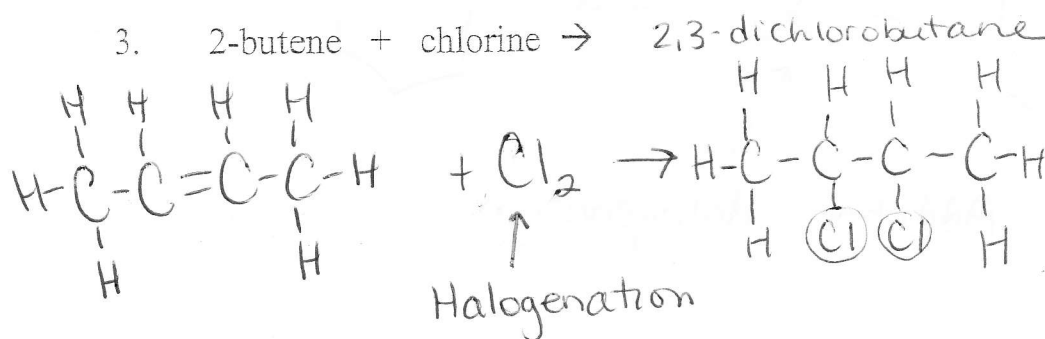 3. 2-butene + chlorine → 2,3-dichlorobutane
H H H H H H H H
H-C-C=C-C-H + Cl₂ → H-C-C-C-C-H
H H H Cl Cl H
Halogenation